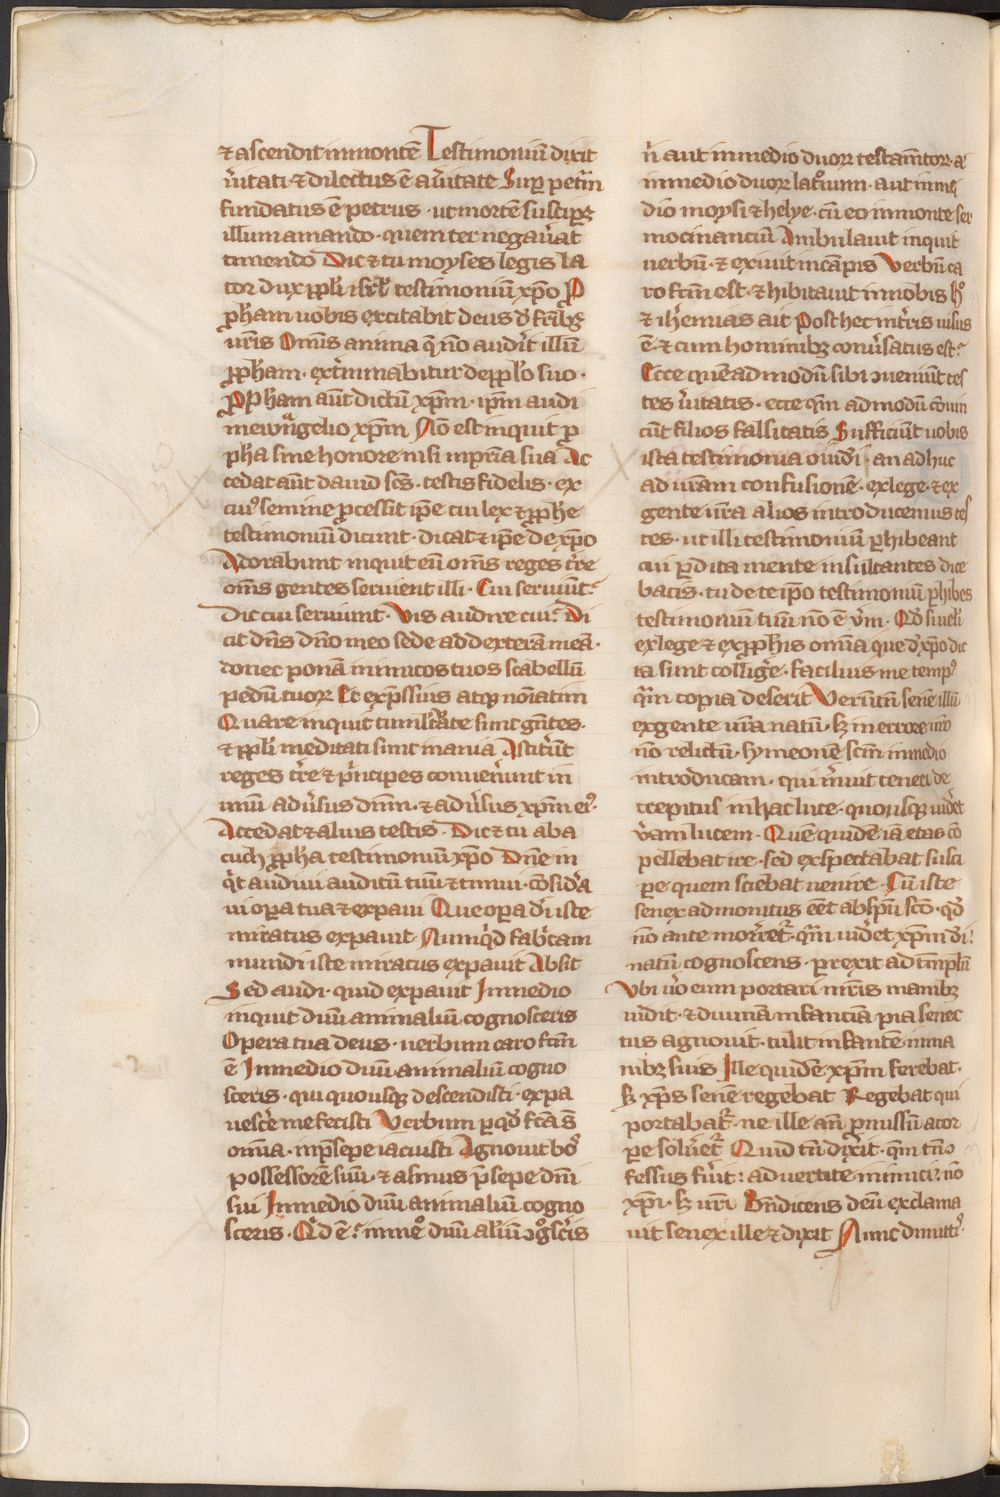 ⁊ ascendit in montē Testimoniū dixit
ṽitati ⁊ dilectus ē a ṽitate Suꝑ petrā
fundatus ē petrus · ut mortē susciꝑꝫ
illum amando · quem ter negau̾at
timendo Dic ⁊ tu moyses legis la
tor dux ppl̓i isrl̓ testimoniū xp̄o P
ꝓham uobis excitabit deus d̓ frīb
ur̄is Omīs anima q̄ nō audi̾t illū
ꝓpham · ext̾minabitur de ppl̓o suo ·
Ppham aūt dictū xp̄m · ip̄m audi
in ewāgelio xp̄m Nō est inquit p
pha sine honore nisi in pr̄ia sua Ac
cedat aūt dauid sc̄s · testis fidelis · ex
cuiꝰ semine ꝓcessit ip̄e cui lex ⁊ ꝓphe
testimoniū dicunt · dicat ⁊ ip̄e de xp̄o
Adorabunt inquit eū om̄s reges tr̄e
om̄s gentes seruient illi · Cui seruiūt
dic cui seruiunt · Vis audire cui Di
cit dn̄s dn̄o meo sede ad dexteram meā ·
donec ponā inimicos tuos scabellū
pedū tuoꝝ Et exp̄ssius atqꝫ noīatim
Quare inquit tumultuate sunt gn̄tes ·
⁊ ppl̓i meditati sunt inania Astite̾ūt
reges tr̄e ⁊ p̓ncipes conuene̾unt in
unū adu̾sus dnm̄ · ⁊ adu̾sus xp̄m eiꝰ ·
Accedat ⁊ alius testis · Dic ⁊ tu aba
cuch ꝓpha testimoniū xp̄o Dn̄e in
q̓t audiui auditū tuū ⁊ timui · cōsid̾a
ui oꝑa tua ⁊ expaui Que oꝑa d̓i iste
miratus expauit Numq̓d fab̓cam
mundi iste miratus expauit Absit
Sed audi · quid expauit In medio
inquit duū animaliū cognosceris
Opera tua deus · uerbum caro fcm̄
ē In medio duū animaliū cogno
sceris · qui quousqꝫ descendisti · expa
uesce̾ me fecisti Verbum ꝑ qd̓ fcā s̄
omīa · in p̄sepe iacuisti Agnouit boꝰ
possessorē suū · ⁊ asinus p̄sepe dn̄i
sui In medio duū animaliū cogno
sceris · Qd̓ ē in meo̊ duū al̓iū ↄgosc̓is
n̓ aut in medio duoꝝ testam̄toꝝ · a̓
in medio duoꝝ lat̓onum · aut in me
dio moysi ⁊ helye · cū eo in monte ser
mocinanciū Ambulauit inquit
uerbū · ⁊ exiuit in cāpis Verbū ca
ro fcm̄ est · ⁊ hibitauit in nobis h̊
⁊ ih̓emias ait Post hec in tr̓is uisus
ē · ⁊ cum hominibꝫ conu̾satus est
Ecce quē ad modū sibi ↄueniūt tes
tes ṽitatis · ecce qm̄ ad modū cōuin
cūt filios falsitatis Sufficiūt uobis
ista testimonia o iud̓i · an adhuc
ad ur̄am confusionē · ex lege · ⁊ ex
gente ur̄a alios introducemus tes
tes · ut illi testimoniū ꝑhibeant
cui ꝑdita mente insultantes dice
batis · tu de te ip̄o testimoniū ꝑhibes
testimoniū tuū nō ē ṽm · Qd̓ si ueli
ex lege ⁊ ex ꝓphis omīa que d̓ xp̄o dic
ta sunt collige̾ · facilius me tempꝰ
qm̄ copia deserit Verūtn̄ senē illū
ex gente ur̄a natū · sꝫ in errore ur̄o
nō relictū · symeonē scm̄ in mediō
introducam · qui m̓uit teneri de
crepitus in hac luce · quousqꝫ uid̾et
ṽam lucem · Quē quidē iā etas cō
pellebat ire · sed exspectabat susci
ꝑe quem sciebat uenire Cū iste
senex admonitus eēt ab sp̄u sco̊ · qd̓
nō ante more̾t᷒ · qm̄ uid̾et xp̄m d̓i
natū cognoscens · ꝑrexit ad templū
Vbi u̾o eum portari mr̄is manibꝫ
uidit · ⁊ diuinā infantiā pia senec
tus agnouit · tulit infantē in ma
nibꝫ suis Ille quidē xp̄m ferebat ·
sꝫ xp̄s senē regebat Regebat qui
portabat᷒ · ne ille an̄ ꝓmissū a cor
ꝑe solu̾et᷒ Quid tn̄ dix̓it · qm̄ tn̄
fessus fu̾it : aduertite inimici · nō
xp̄m · sꝫ ur̄i Bn̄dicens deū exclama
uit senex ille ⁊ dixit Nunc dimittꝰ ·